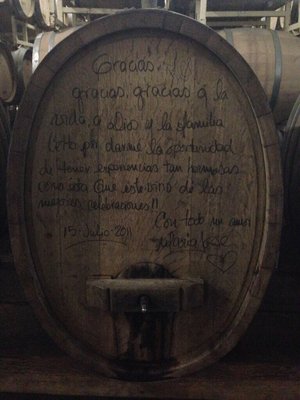 Gracias..!
gracias, gracias a la
vida, a Dios y la familia
por darme la oportunidad
de tener experiencias tan hermosas
como esta que este vino de las
mejores celebraciones!!
Con todo mi amor
15-Julio-2011